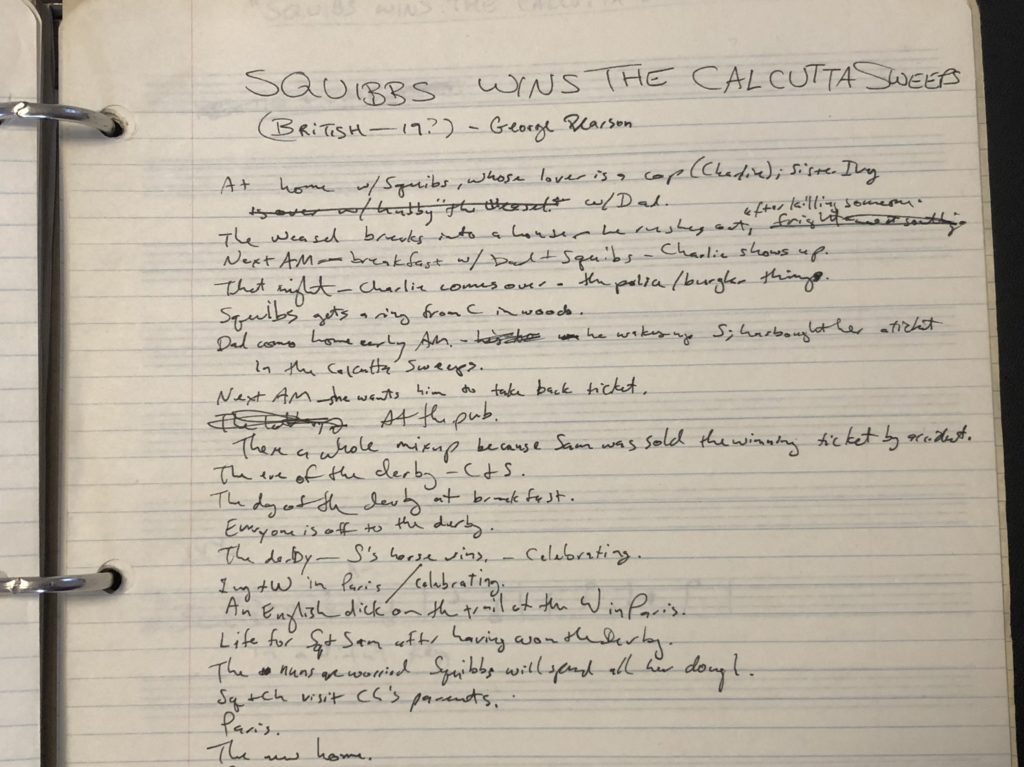 SQUIBBS WINS THE CALCUTTA SWEEPS
(BRITISH — 19?) - George Pearson
At home w/Squibs, whose lover is a cop (Charlie); sister Ivy
is over w/hubby "the Weasel" w/Dad.
The Weasel breaks into a house - he rushes out, after killing someone.
Next AM - breakfast w/ Dad + Squibs - Charlie shows up.
That night - Charlie comes over - the police/burglar things.
Squibbs gets a ring from C in woods.
Dad comes home early AM. - he wakes up S; has bought her a ticket
in the Calcutta Sweeps.
Next AM - she wants him to take back ticket.
At the pub.
There a whole mixup because Sam was sold the winning ticket by accident.
The eve of the derby - C + S.
The day of the derby at breakfast.
Everyone is off to the derby.
The derby - S's horse wins. - Celebrating.
Ivy + W in Paris / celebrating.
An English dick on the trail of the W in Paris.
Life for Sq + Sam after having won the derby.
The nuns are worried Squibbs will spend all her dough.
Sq + Ch visit Ch's parents.
Paris.
The new home.